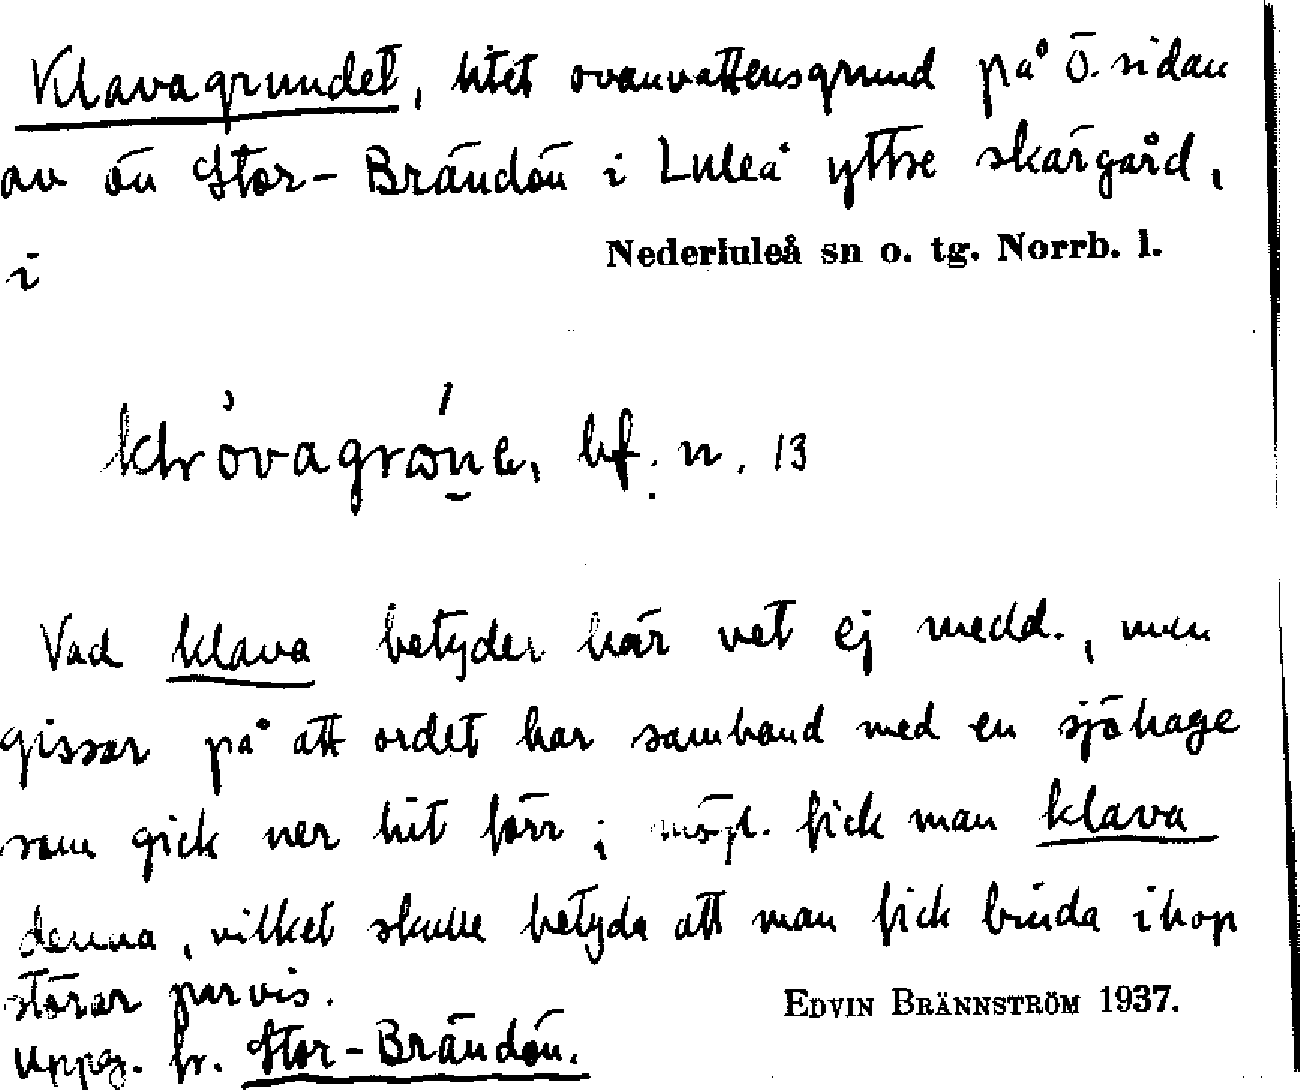 Klavagrundet, litet ovanvattensgrund på ö. sidan
av ön Stor-Brändön i Luleå yttre skärgård,
i Nederluleå sn o. tg. Norrb. l.
bf. n. 13
Vad klava betyder här vet ej medd., men
gissar på att ordet har samband med en sjöhage
som gick ner hit förr; möjl. fick man klava
denna, vilket skulle betyda att man fick binda ihop
störar parvis.
EDVIN BRÄNNSTRÖM 1937.
Uppg. fr. Stor-Brändön.